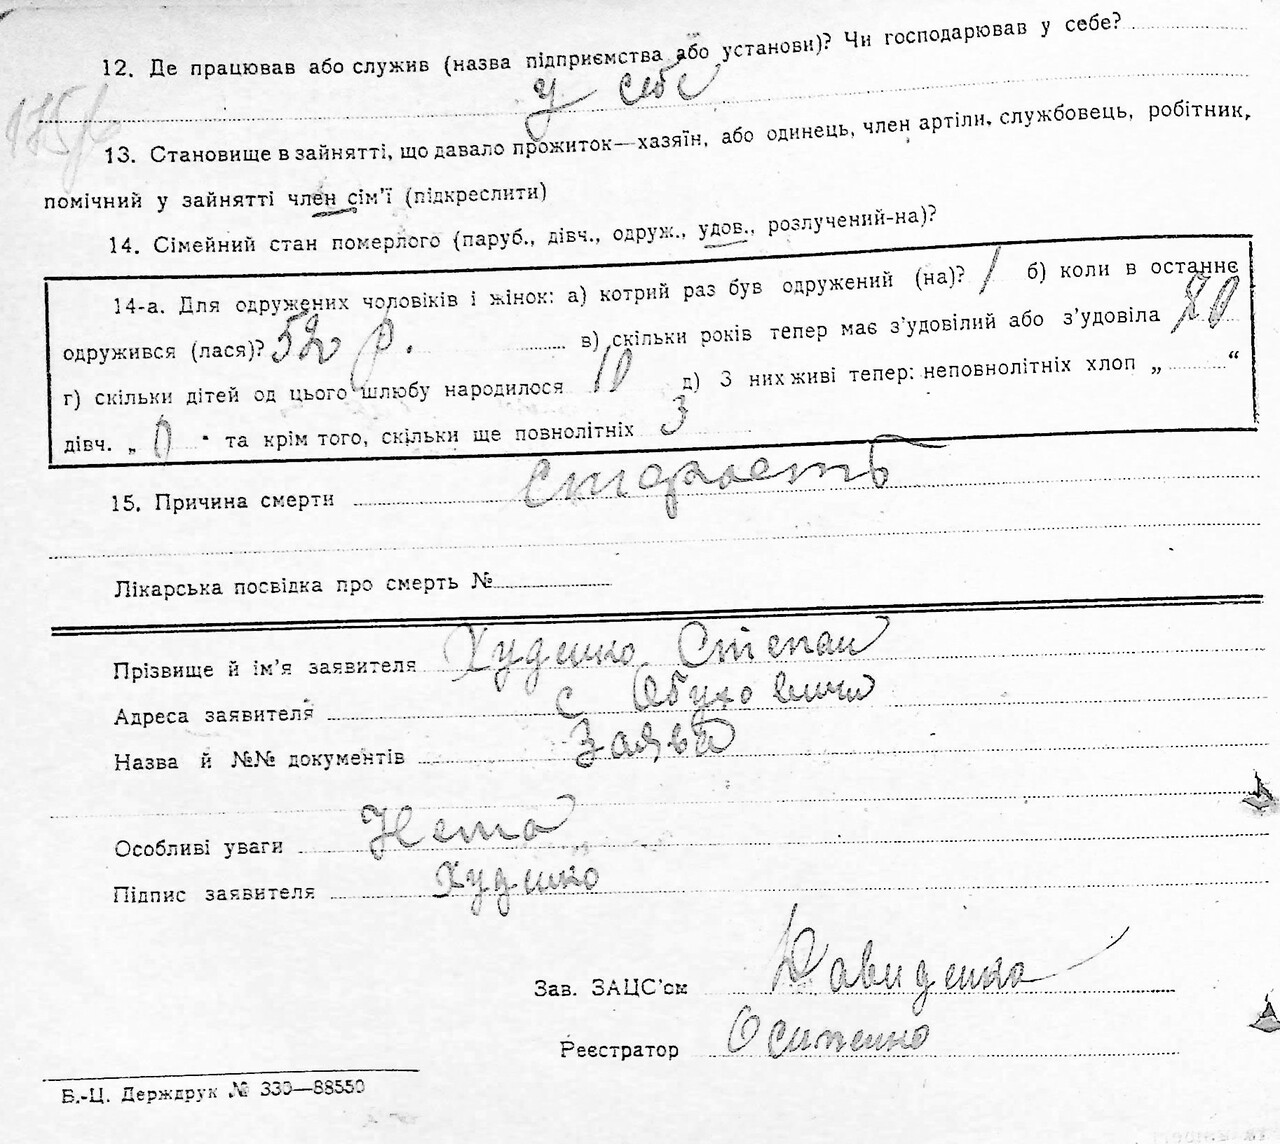 12. Де працював або служив (назва підприємства або установи)? Чи господарював у себе?
у себе
175/6
13. Становище в зайнятті, що давало прожиток—хазяїн, або одинець, член артіли, службовець, робітник,
помічний у зайнятті член сім'ї (підкреслити)
14. Сімейний стан померлого (паруб., дівч., одруж., удов., розлучений-на)?
14-а. Для одружених чоловіків і жінок: а) котрий раз був одружений (на)? 1 б) коли в останнє
одружився (лася)? 52 р. в) скільки років тепер має з'удовілий або з'удовіла
г) скільки дітей од цього шлюбу народилося 10 д) З них живі тепер: неповнолітніх хлоп „ “
дівч. „ 0 " та крім того, скільки ще повнолітніх 3
15. Причина смерти старость
Лікарська посвідка про смерть №
Прізвище й ім'я заявителя Худенко Степан
Адреса заявителя с Обуховичи
Назва й №№ документів Заява
Особливі уваги Нема
Підпис заявителя Худенко
Зав. ЗАЦС'ом Давиденко
Реєстратор Осипенко
Б.-Ц. Держдрук № 330—88550